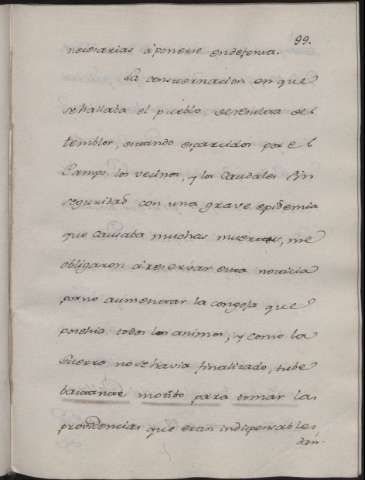 99.
nesesarias á ponerse en defensa.
La consternacion en que
se hallaba el pueblo, de resultas del
temblor, estando esparcidos por el
Campo los vecinos, y los Caudales sin
seguridad con una grave epidemia
que causaba muchas muertes, me
obligaron á reservar esta noticia
para no aumentar la congoja que
posehia todos los animos, y como la
Guerra no se havia finalizado, tube
bastante motibo para tomar las
providencias que eran indispensables,